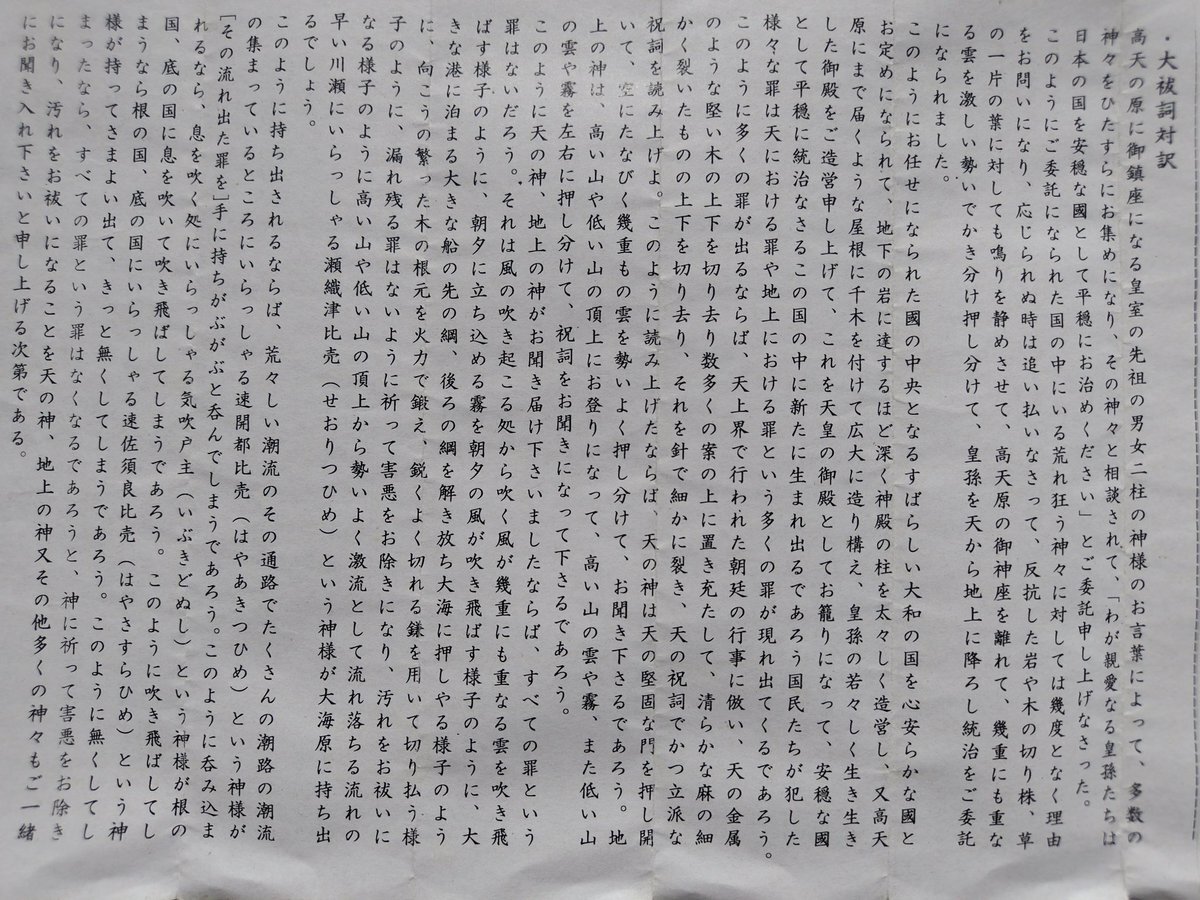 ・大祓詞対訳
高天の原に御鎮座になる皇室の先祖の男女二柱の神様のお言葉によって、多数の
神々をひたすらにお集めになり、その神々と相談されて、「わが親愛なる皇孫たちは
日本の国を安穏な國として平穏にお治めください」とご委託申し上げなさった。
このようにご委託になられた国の中にいる荒れ狂う神々に対しては幾度となく理由
をお問いになり、応じられぬ時は追い払いなさって、反抗した岩や木の切り株、草
の一片の葉に対しても鳴りを静めさせて、高天原の御神座を離れて、幾重にも重な
る雲を激しい勢いでかき分け押し分けて、皇孫を天から地上に降ろし統治をご委託
になられました。
このようにお任せになられた國の中央となるすばらしい大和の国を心安らかな國と
お定めになられて、地下の岩に達するほど深く神殿の柱を太々しく造営し、又高天
原にまで届くような屋根に千木を付けて広大に造り構え、皇孫の若々しく生き生き
した御殿をご造営申し上げて、これを天皇の御殿としてお籠りになって、安穏な國
として平穏に統治なさるこの国の中に新たに生まれ出るであろう国民たちが犯した
様々な罪は天における罪や地上における罪という多くの罪が現れ出てくるであろう。
このように多くの罪が出るならば、天上界で行われた朝廷の行事に倣い、天の金属
のような堅い木の上下を切り去り数多くの案の上に置き充たして、清らかな麻の細
かく裂いたものの上下を切り去り、それを針で細かに裂き、天の祝詞でかつ立派な
祝詞を読み上げよ。このように読み上げたならば、天の神は天の堅固な門を押し開
いて、空にたなびく幾重もの雲を勢いよく押し分けて、お聞き下さるであろう。地
上の神は、高い山や低い山の頂上にお登りになって、高い山の雲や霧、また低い山
の雲や霧を左右に押し分けて、祝詞をお聞きになって下さるであろう。
このように天の神、地上の神がお聞き届け下さいましたならば、すべての罪という
罪はないだろう。それは風の吹き起こる処から吹く風が幾重にも重なる雲を吹き飛
ばす様子のように、朝夕に立ち込める霧を朝夕の風が吹き飛ばす様子のように、大
きな港に泊まる大きな船の先の綱、後ろの綱を解き放ち大海に押しやる様子のよう
に、向こうの繁った木の根元を火力で鍛え、鋭くよく切れる鎌を用いて切り払う様
子のように、漏れ残る罪はないように祈って害悪をお除きになり、汚れをお祓いに
なる様子のように高い山や低い山の頂上から勢いよく激流として流れ落ちる流れの
早い川瀬にいらっしゃる瀬織津比売（せおりつひめ）という神様が大海原に持ち出
るでしょう。
このように持ち出されるならば、荒々しい潮流のその通路でたくさんの潮路の潮流
の集まっているところにいらっしゃる速開都比売（はやあきつひめ）という神様が
［その流れ出た罪を］手に持ちがぶがぶと呑んでしまうであろう。このように呑み込ま
れるなら、息を吹く処にいらっしゃる気吹戸主（いぶきどぬし）という神様が根の
国、底の国に息を吹いて吹き飛ばしてしまうであろう。このように吹き飛ばしてし
まうなら根の国、底の国にいらっしゃる速佐須良比売（はやさすらひめ）という神
様が持ってさまよい出て、きっと無くしてしまうであろう。このように無くしてし
まったなら、すべての罪という罪はなくなるであろうと、神に祈って害悪をお除き
になり、汚れをお祓いになることを天の神、地上の神又その他多くの神々もご一緒
にお聞き入れ下さいと申し上げる次第である。